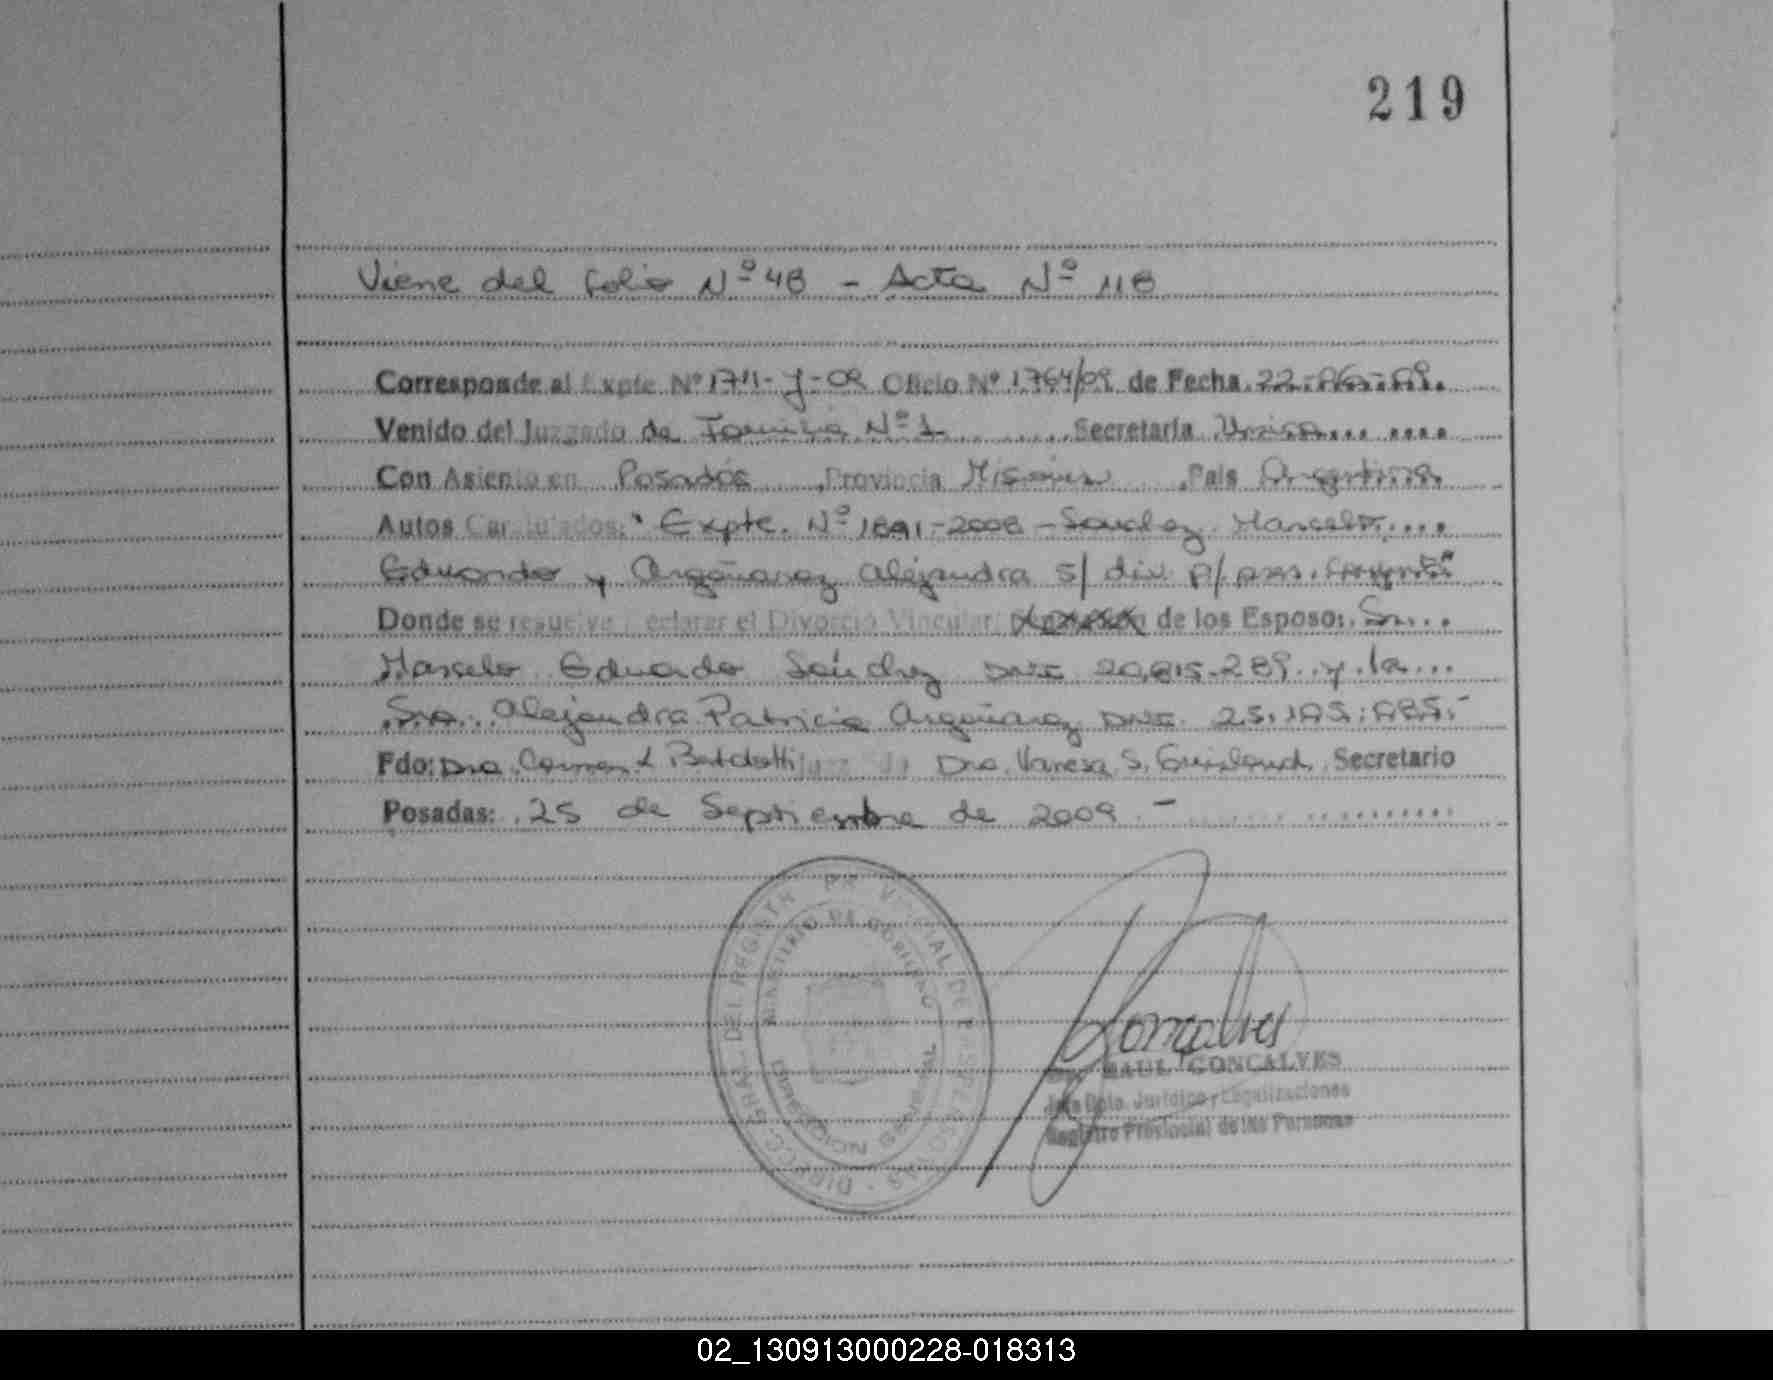 219
Viene del folio Nº 48 - Acta Nº 118
Corresponde al Expte Nº 1711-J-09 Oficio Nº 1764/09 de Fecha 22-06-09.
Venido del Juzgado de Familia Nº 1 Secretaria Unica
Con Asiento en Posadas, Provincia Misiones, Pais Argentina
Autos Caratulados: "Expte. Nº 1891-2008 - Sanchez Marcelo
Eduardo y Argañaraz Alejandra S/ div. P/ pres. conjunta"
Donde se resuelve declarar el Divorcio Vincular de los Esposo: Sr.
Marcelo Eduardo Sánchez DNI 20.815.289 y la
Sra. Alejandra Patricia Argañaraz DNI. 25.105.085.-
Fdo: Dra. Carmen Juez de Dra. Vanesa S. Secretario
Posadas: 25 de Septiembre de 2009 -
DIRECC. GRAL. DEL REGISTRO PROVINCIAL DE LAS PERSONAS
MINISTERIO DE GOBIERNO
Goncalves
RAUL GONCALVES
Jefe Dpto. Jurídico y Legalizaciones
Registro Provincial de las Personas
02_130913000228-018313